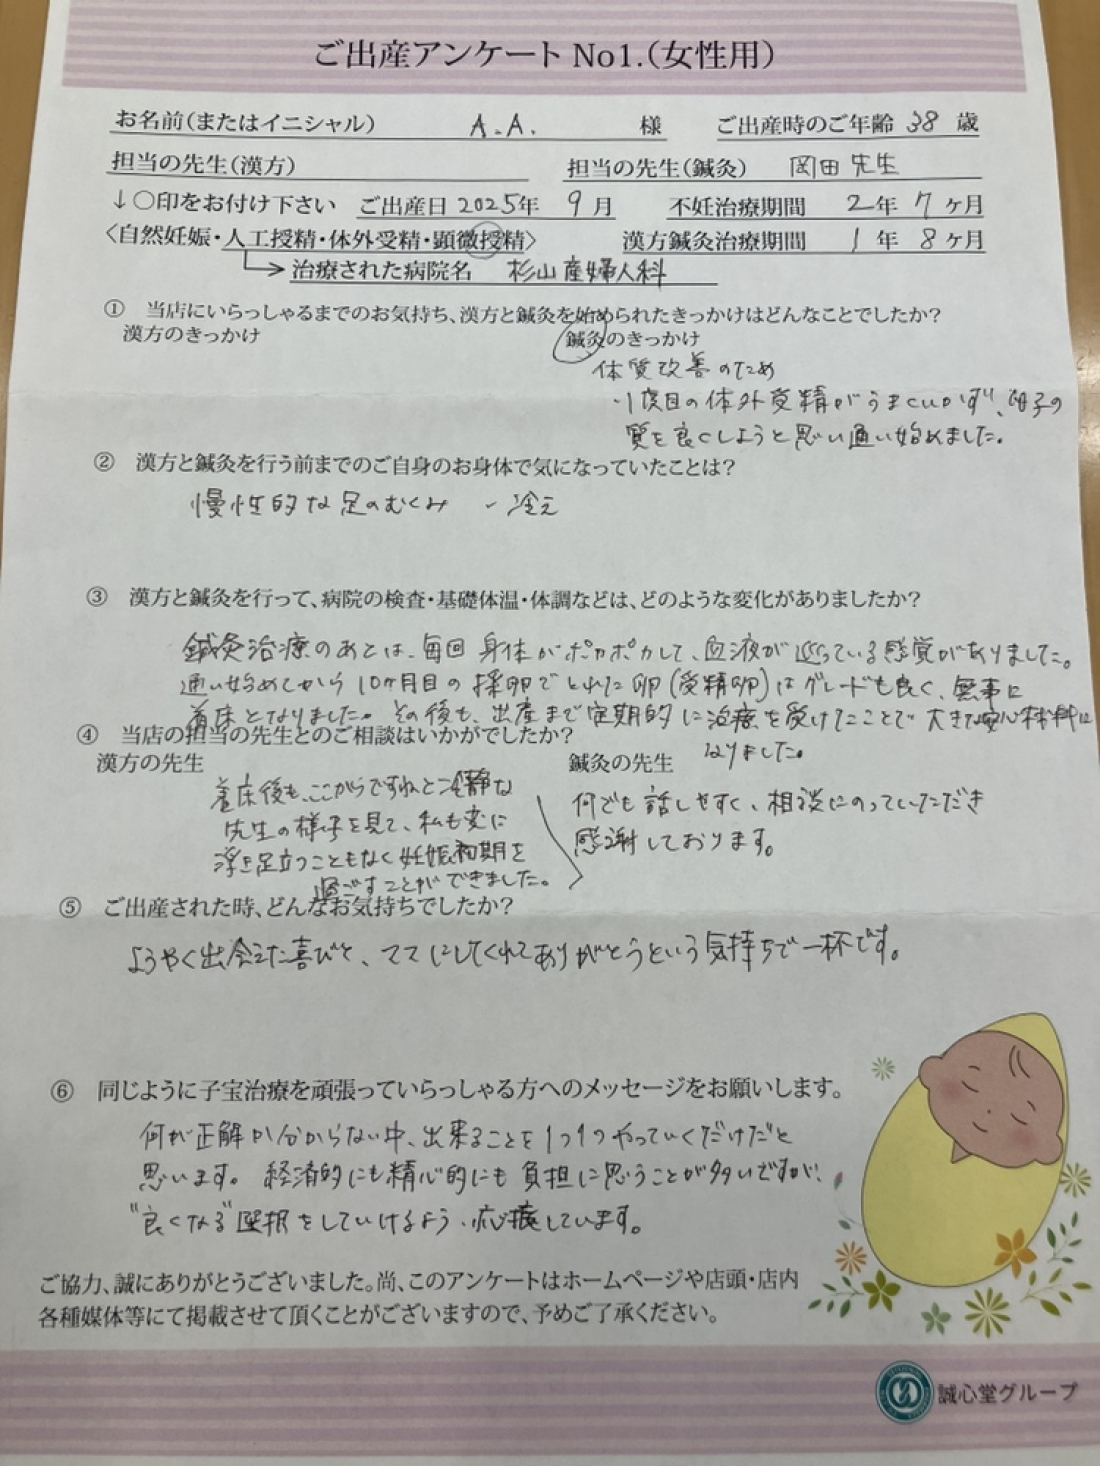 ご出産アンケート No1.（女性用）
お名前（またはイニシャル） A.A. 様 ご出産時のご年齢 38 歳
担当の先生（漢方） 担当の先生（鍼灸） 岡田先生
↓○印をお付け下さい ご出産日 2025年 9月 不妊治療期間 2年 7ヶ月
〈自然妊娠・人工授精・体外受精・顕微授精〉 漢方鍼灸治療期間 1年 8ヶ月
治療された病院名 杉山産婦人科
① 当店にいらっしゃるまでのお気持ち、漢方と鍼灸を始められたきっかけはどんなことでしたか？
漢方のきっかけ 鍼灸のきっかけ
体質改善のため
・1度目の体外受精がうまくいかず、卵子の
質を良くしようと思い通い始めました。
② 漢方と鍼灸を行う前までのご自身のお身体で気になっていたことは？
慢性的な足のむくみ 、冷え
③ 漢方と鍼灸を行って、病院の検査・基礎体温・体調などは、どのような変化がありましたか？
鍼灸治療のあとは、毎回身体がポカポカして、血液が巡っている感覚がありました。
通い始めてから10ヶ月目の採卵でとれた卵（受精卵）はグレードも良く、無事に
着床となりました。その後も、出産まで定期的に治療を受けてたことで大きな安心材料に
なりました。
④ 当店の担当の先生とのご相談はいかがでしたか？
漢方の先生 鍼灸の先生
何でも話しやすく、相談にのっていただき
感謝しております。
着床後も、ここからですねと冷静な
先生の様子を見て、私も変に
浮き足立つこともなく妊娠初期を
過ごすことができました。
⑤ ご出産された時、どんなお気持ちでしたか？
ようやく出会えた喜びと、ママにしてくれてありがとうという気持ちで一杯です。
⑥ 同じように子宝治療を頑張っていらっしゃる方へのメッセージをお願いします。
何が正解か分からない中、出来ることを1つ1つやっていくだけだと
思います。経済的にも精心的にも負担に思うことが多いですが、
"良くなる"選択をしていけるよう、応援しています。
ご協力、誠にありがとうございました。尚、このアンケートはホームページや店頭・店内
各種媒体等にて掲載させて頂くことがございますので、予めご了承ください。
誠心堂グループ